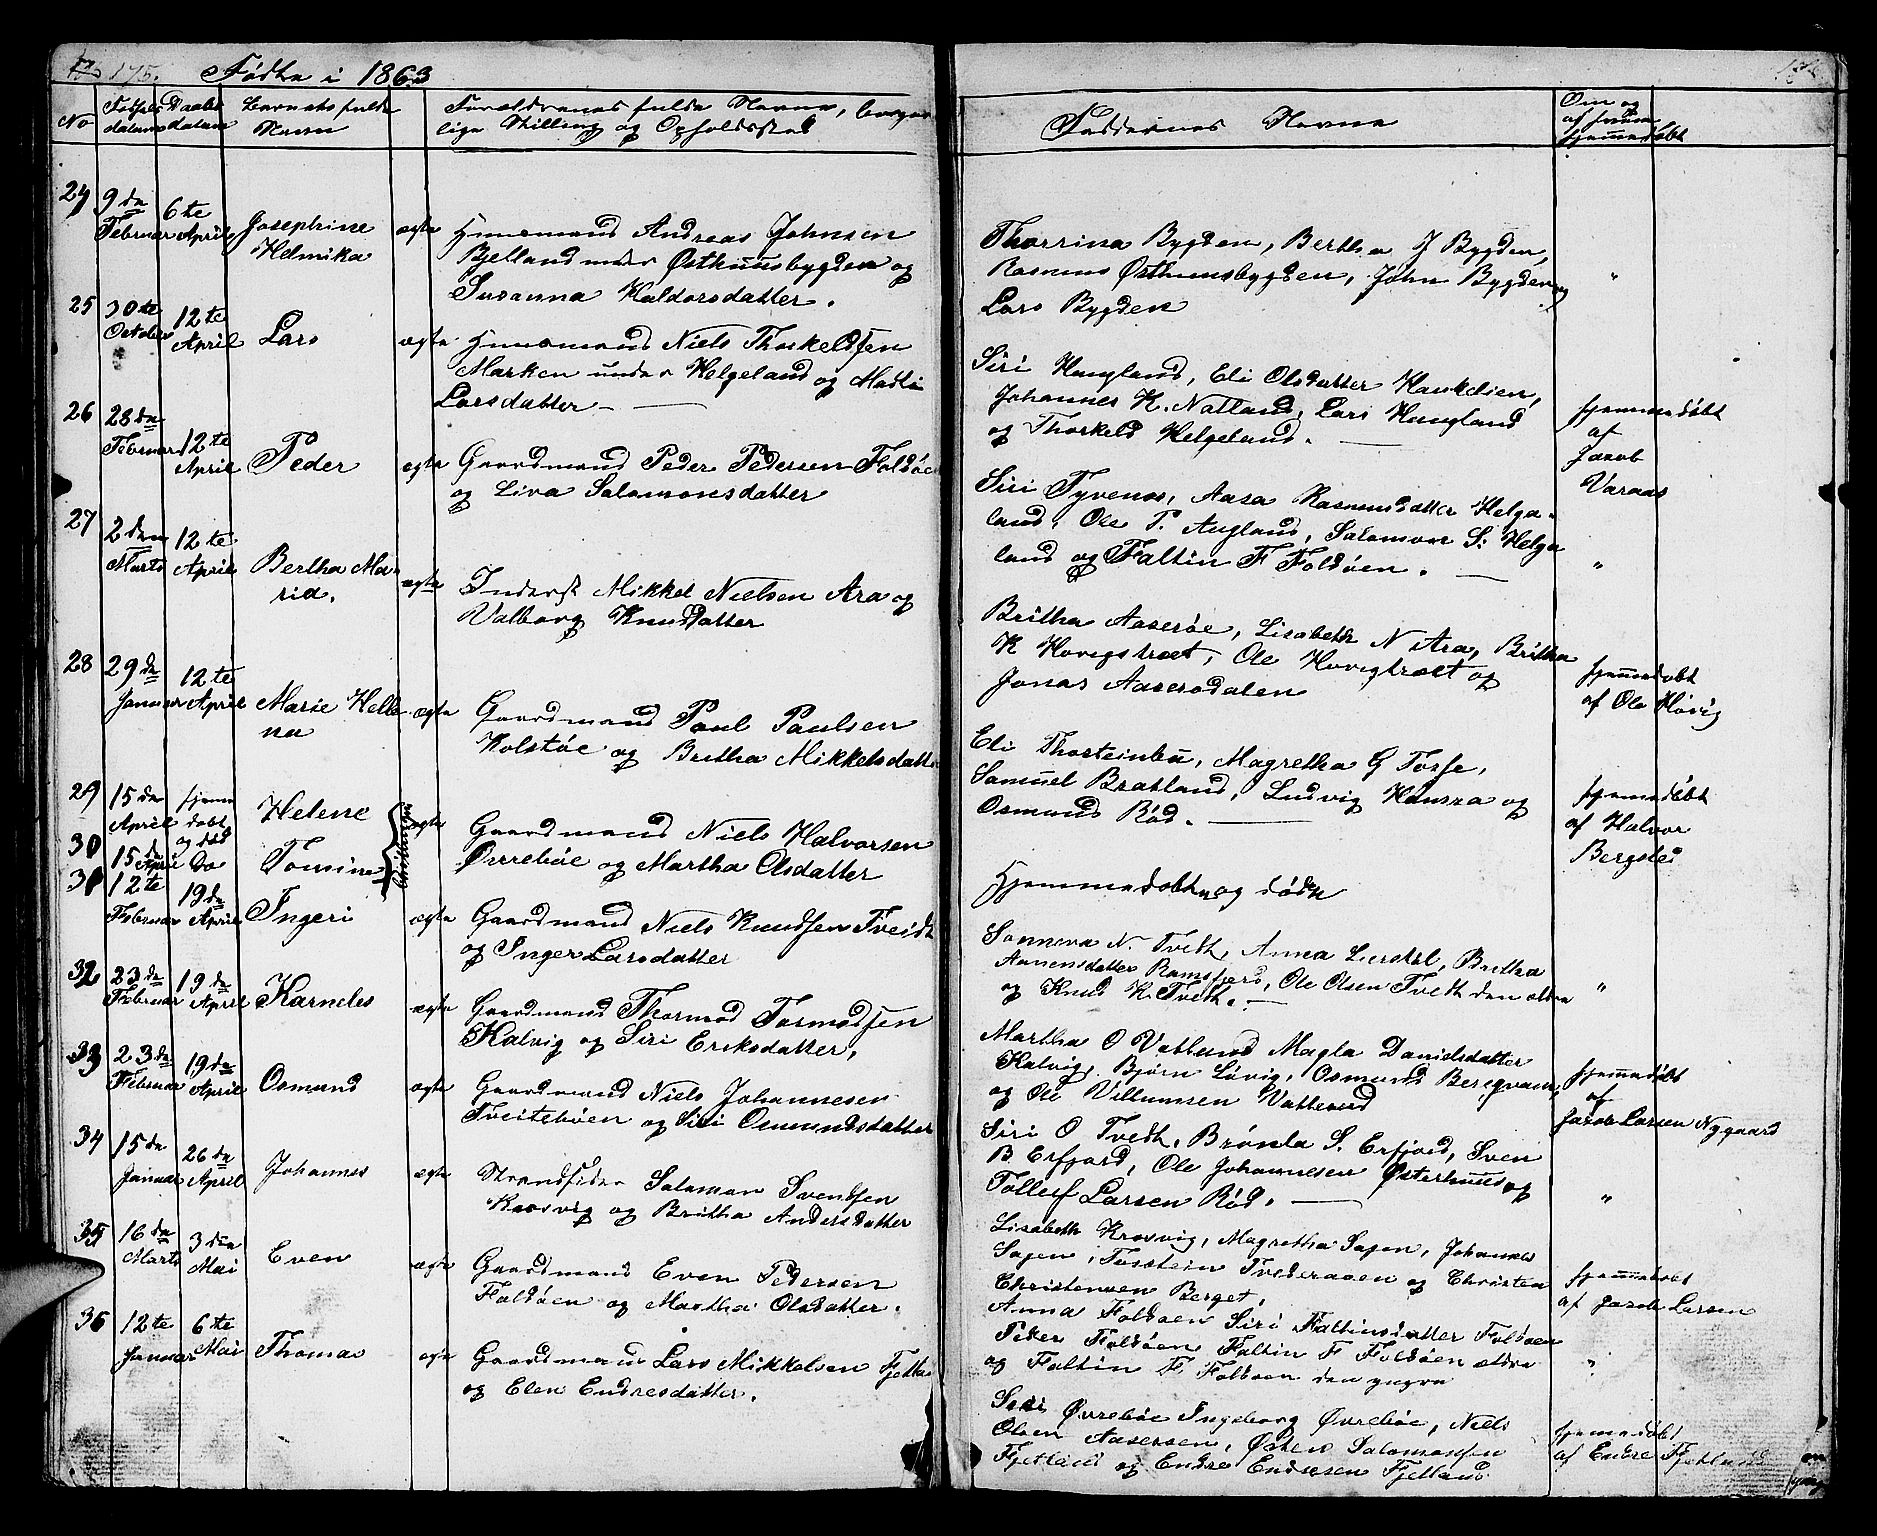 175.
Födte i 1863
No
Fødsels datum
Daabs datum
Barnets fulde Navn
Forældrenes fulde Navne, borger-
lige Stilling og Opholdssted
Faddernes Navne
Om og
af hvem
hjemmedøbt
24
9de Februar
6te April
Josephine
Helmika
ægte
Huusmand Andreas Johnsen
Bjelland under Østhuusbygden og
Susanna Haldorsdatter.
Thorrina Bygden, Bertha J Bygden,
Rasmus Østhuusbygden, John Bygden og
Lars Bygden
"
25
30te October
12te April
Lars
ægte
Huusmand Niels Thorkeldsen
Marken under Helgeland og Madli
Larsdatter
Siri Haugland, Eli Olsdatter
Johannes K. Natland, Lars Haugland
og Thorkeld Helgeland.
hjemmedøbt
af
Jacob
Varaas
26
28de Februar
12te April
Peder
ægte
Gaardmand Peder Pedersen Foldøe
og Liva Salomonsdatter
Siri Tyvenes, Aasa Rasmusdatter Helge-
land, Ole P. Augland, Salomon S. Helge
land og Faltin F Foldøen.
"
27
2den Marts
12te April
Bertha Ma-
ria.
ægte
Inderst Mikkel Nielsen Ara og
Valborg Knudsdatter
Britha Aaserøe, Lisabeth N Ara, Britha
K Hovigstræt, Ole Hovigtræet og
Jonas Aaserødalen
hjemmedøbt
af Ole Høvig
28
29de Januar
12te April
Marie Helle
na
ægte
Gaardmand Poul Paulsen
Kolstøe og Britha Mikkelsdatter
Eli Thorsteinbu, Magretha G Tosse,
Samuel Bratland, Ludvig Hamra og
Osmund Rød.
hjemmedøbt
af Halvor
Bergstei
29
15de April
hjemmedøbt og død
Helene
30
15de April
Do
Tomine
ægte
Gaardmand Niels Halvorsen
Øvrebøe og Martha Olsdatter
Hjemmedøbte og døde
31
12te Februar
19de April
Ingeri
ægte
Gaardmand Niels Knudsen Tveidt
og Inger Larsdatter
N. Tvedt, Anna Lierstøl, Britha
Aamunsdatter Ramsfjord, Ole Olsen Tvedt den eldre
og Knud K. Tvedt.
"
32
23de Februar
19de April
Karneles
ægte
Gaardmand Thormod Tormodsen
Kalvig og Siri Eriksdatter,
Martha O Vatland Magla Danielsdatter
Kalvig, Bjørn Løvig, Osmund Bergquam,
og Ole Villumsen
hjemmedøbt
af
Jacob Larsen Nygaard
33
23de Februar
19de April
Osmund
ægte
Gaardmand Niels Johannesen
Tveitebøen og Siri Osmundsdatter
Siri O Tvedt, Brønla S. Erfjord, Sven
B Erfjord, Ole Johannesen Østerhuus og
Tollef Larsen Rød.
"
34
15de Januar
26de April
Johannes
ægte
Strandsider Salomon Svendsen
Krosvig og Britha Andersdatter
Lisabeth Krosvig, Magretha Sagen, Johannes
Sagen, Torstein Tvederaaen og Christen
Christensen Berget.
hjemmedøbt
af Jacob Larsen
35
16de Marts
3die Mai
Even
ægte
Gaardmand Even Pedersen
Foldøen og Martha Olsdatter.
Anna Foldøen Siri Faltinsdatter Foldøen
Peder Foldøen Faltin F Foldøen ældre
og Faltin F. Foldøen den yngre
"
36
12te Januar
6te Mai
Thomas
ægte
Gaardmand Lars Mikkelsen Fjetla
og Elen Endresdatter.
Siri Øvrebøe Ingeborg Øvrebøe, Niels
Olsen Aasersen, Østen Salomonsen
Fjetland og Endre Endresen Fjetland
hjemmedøbt
af Endre Fjetland